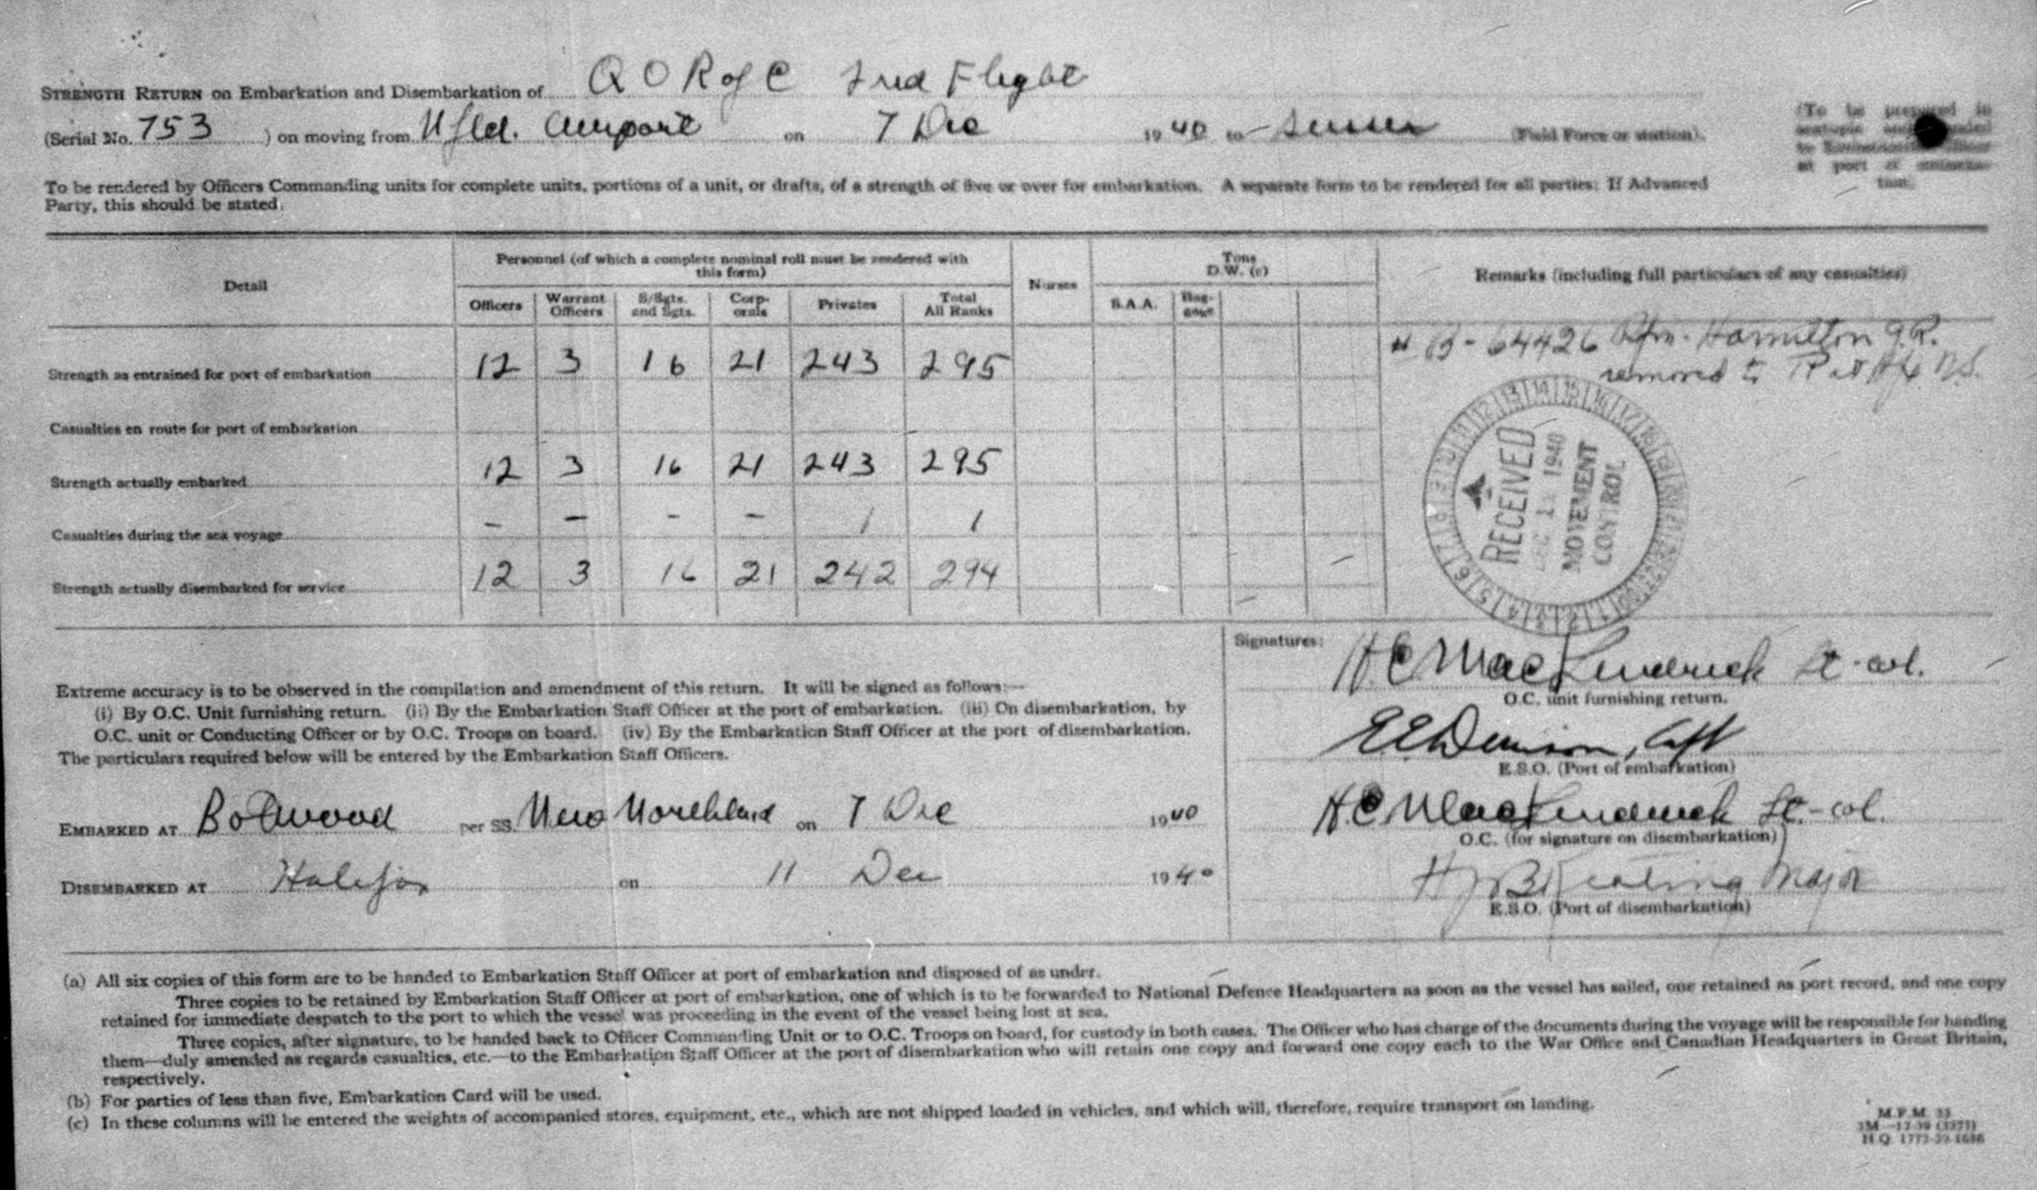 STRENGTH RETURN on Embarkation and Disembarkation of Q O R of C Flight
(Serial No. 753 ) on moving from Nfld. Airport on 7 Dec 1940 to Sussex (Field Force or station).
(To be prepared in
at port of embarka-
tion.
To be rendered by Officers Commanding units for complete units, portions of a unit, or drafts, of a strength of five or over for embarkation. A separate form to be rendered for all parties; If Advanced
Party, this should be stated.
Detail
Personnel (of which a complete nominal roll must be rendered with
this form)
Nurses
Tons
D.W. (c)
Remarks (including full particulars of any casualties)
Officers Warrant Officers S/Sgts. and Sgts. Corp-orals Privates Total All Ranks S.A.A. Bag-gage
Strength as entrained for port of embarkation 12 3 16 21 243 295
B-64426 Rfn. Hamilton J.R.
removed to N.S.
Casualties en route for port of embarkation
Strength actually embarked 12 3 16 21 243 295
Casualties during the sea voyage – – – – 1 1
Strength actually disembarked for service 12 3 16 21 242 294
RECEIVED
DEC 1940
MOVEMENT
CONTROL
Signatures:
H C MacKendrick Lt-col.
O.C. unit furnishing return.
Extreme accuracy is to be observed in the compilation and amendment of this return. It will be signed as follows:—
(i) By O.C. Unit furnishing return. (ii) By the Embarkation Staff Officer at the port of embarkation. (iii) On disembarkation, by
O.C. unit or Conducting Officer or by O.C. Troops on board. (iv) By the Embarkation Staff Officer at the port of disembarkation.
The particulars required below will be entered by the Embarkation Staff Officers.
E E Denison, Capt
E.S.O. (Port of embarkation)
EMBARKED AT Botwood per SS. New Northland on 7 Dec 1940
H.C MacKendrick Lt.-col.
O.C. (for signature on disembarkation)
DISEMBARKED AT Halifax on 11 Dec 1940
Keating Major
E.S.O. (Port of disembarkation)
(a) All six copies of this form are to be handed to Embarkation Staff Officer at port of embarkation and disposed of as under.
Three copies to be retained by Embarkation Staff Officer at port of embarkation, one of which is to be forwarded to National Defence Headquarters as soon as the vessel has sailed, one retained as port record, and one copy
retained for immediate despatch to the port to which the vessel was proceeding in the event of the vessel being lost at sea.
Three copies, after signature, to be handed back to Officer Commanding Unit or to O.C. Troops on board, for custody in both cases. The Officer who has charge of the documents during the voyage will be responsible for handing
them—duly amended as regards casualties, etc.—to the Embarkation Staff Officer at the port of disembarkation who will retain one copy and forward one copy each to the War Office and Canadian Headquarters in Great Britain,
respectively.
(b) For parties of less than five, Embarkation Card will be used.
(c) In these columns will be entered the weights of accompanied stores, equipment, etc., which are not shipped loaded in vehicles, and which will, therefore, require transport on landing.
M.F.M. 33
3M—12-39 (3371)
H.Q. 1772-39-1686